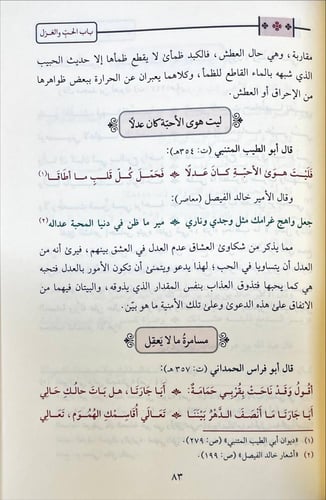 باب الحُبّ والغزل
مقاربة، وهي حال العطش، فالكبد ظمأى لا يقطع ظمأها إلا حديث الحبيب
الذي شبهه بالماء القاطع للظمأ، وكلاهما يعبران عن الحرارة ببعض ظواهرها
من الإحراق أو العطش.
ليت هوى الأحبّة كان عدلًا
قال أبو الطيب المتنبي (ت: ٣٥٤هـ):
فَلَيْتَ هَوَىٰ الأَحِبَّةِ كَانَ عَدلًا فَحَمَلَ كُلَّ قَلبٍ مَا أَطَاقَا (١)
وقال الأمير خالد الفيصل (معاصر):
جعل واهج غرامك مثل وجدي وناري مير ما ظن في دنيا المحبة عداله (٢)
مما يذكر من شكاوىٰ العشاق عدم العدل في العشق بينهم، فيرىٰ أنه من
العدل أن يتساويا في الحب؛ لهذا يدعو ويتمنىٰ أن تكون الأمور بالعدل فتحبه
هي كما يحبها فتذوق العذاب بنفس المقدار الذي يذوقه، والبيتان فيهما من
الاتفاق علىٰ هذه الدعوىٰ وعلىٰ تلك الأمنية ما هو بيّن.
مسامرةُ ما لا يَعقِل
قال أبو فراس الحمداني (ت: ٣٥٧هـ):
أَقُولُ وَقَدْ نَاحَتْ بِقُرْبِي حَمَامَةٌ: أَيَا جَارَتَا، هَل بَاتَ حَالُكِ حَالِي
أَيَا جَارَتَا مَا أَنْصَفَ الدَّهْرُ بَيْنَنَا تَعَالَي أُقَاسِمْكِ الهُمُومَ، تَعَالِي
(١) «ديوان أبي الطيب المتنبي» (ص: ٢٧٩).
(٢) «أشعار خالد الفيصل» (ص: ١٩٩).
٨٣